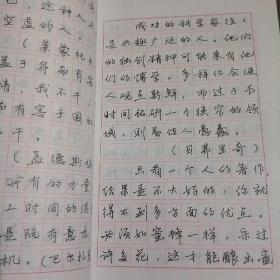 己，这种人
空虚的人。
（莱蒙托
孟于身而有害
情，我不干，
而有害于国的
干，
（孟德斯
所有的力量
上时间的混
是既有意志
机。（巴尔扎
成功的科学家往
是兴趣广泛的人。他们
的独创精神可能来自他
们的博学。多样化会使
人观点新鲜，而过于长
时间钻研一个狭窄的领
域，则易使人愚蠢。
（贝弗里奇）
只看一个人的著作，
结果是不大好的：你就
得不到多方面的优点。
必须如蜜蜂一样，采过
许多花，这才能酿出蜜